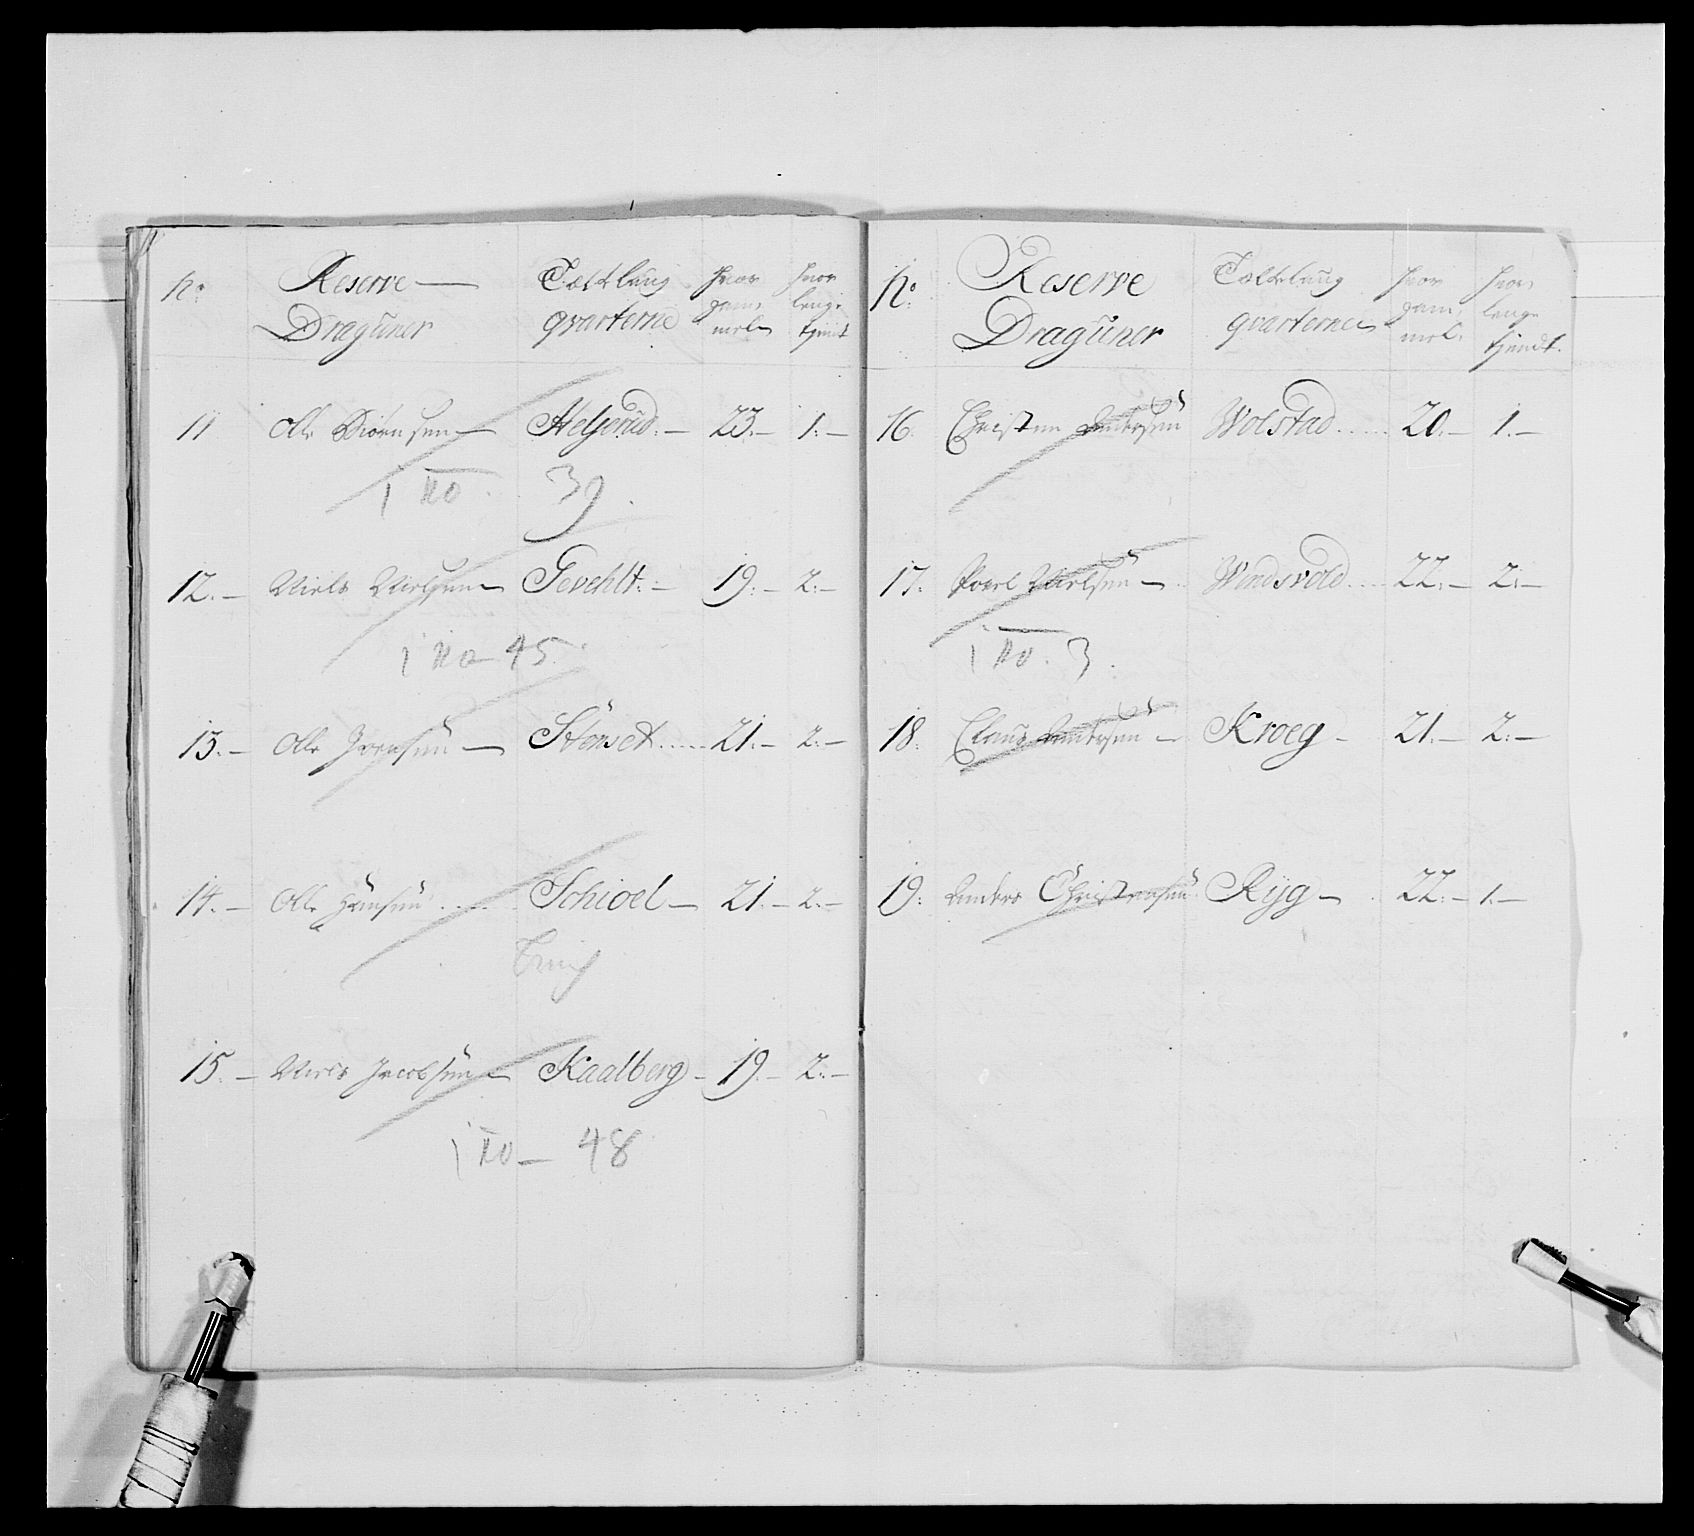 No Reserve Dragŭner Tæltlaug qvarterne hvor gammel hvor lenge tjent
11 Olle Biørnsen Helgerud 23 1
i No 39
12 Niels Nielsen Gevehlt 19 2
i No 45
13 Olle Iversen Stenset 21 2
14 Olle Hansen Schioel 21 2
15 Niels Jacobsen Kaalberg 19 2
i No 48
No Reserve Dragŭner Tæltlaug qvarterne hvor gammel hvor lenge tjendt
16 Christen Andersen Wolstad 20 1
17 Povel Nielsen Windsvold 22 2
i No 3
18 Claus Andersen Kroeg 21 2
19 Anders Christensen Ryg 22 1